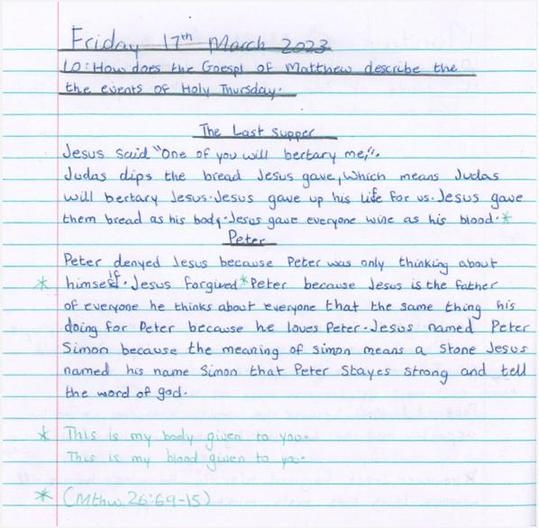 Friday 17th March 2023
LO: How does the Goespl of Matthew describe the
the events of Holy Thursday.
The Last Supper
Jesus said "One of you will bertary me,".
Judas dips the bread Jesus gave, which means Judas
will bertary Jesus. Jesus gave up his life for us. Jesus gave
them bread as his body. Jesus gave everyone wine as his blood. *
Peter
Peter denyed Jesus because Peter was only thinking about
* himself. Jesus forgived * Peter because Jesus is the father
of everyone he thinks about everyone that the same thing his
doing for Peter because he loves Peter. Jesus named Peter
Simon because the meaning of simon means a stone Jesus
named his name Simon that Peter Stayes strong and tell
the word of god.
* This is my body given to you.
This is my blood given to you.
* (Mthw 26:69-15)